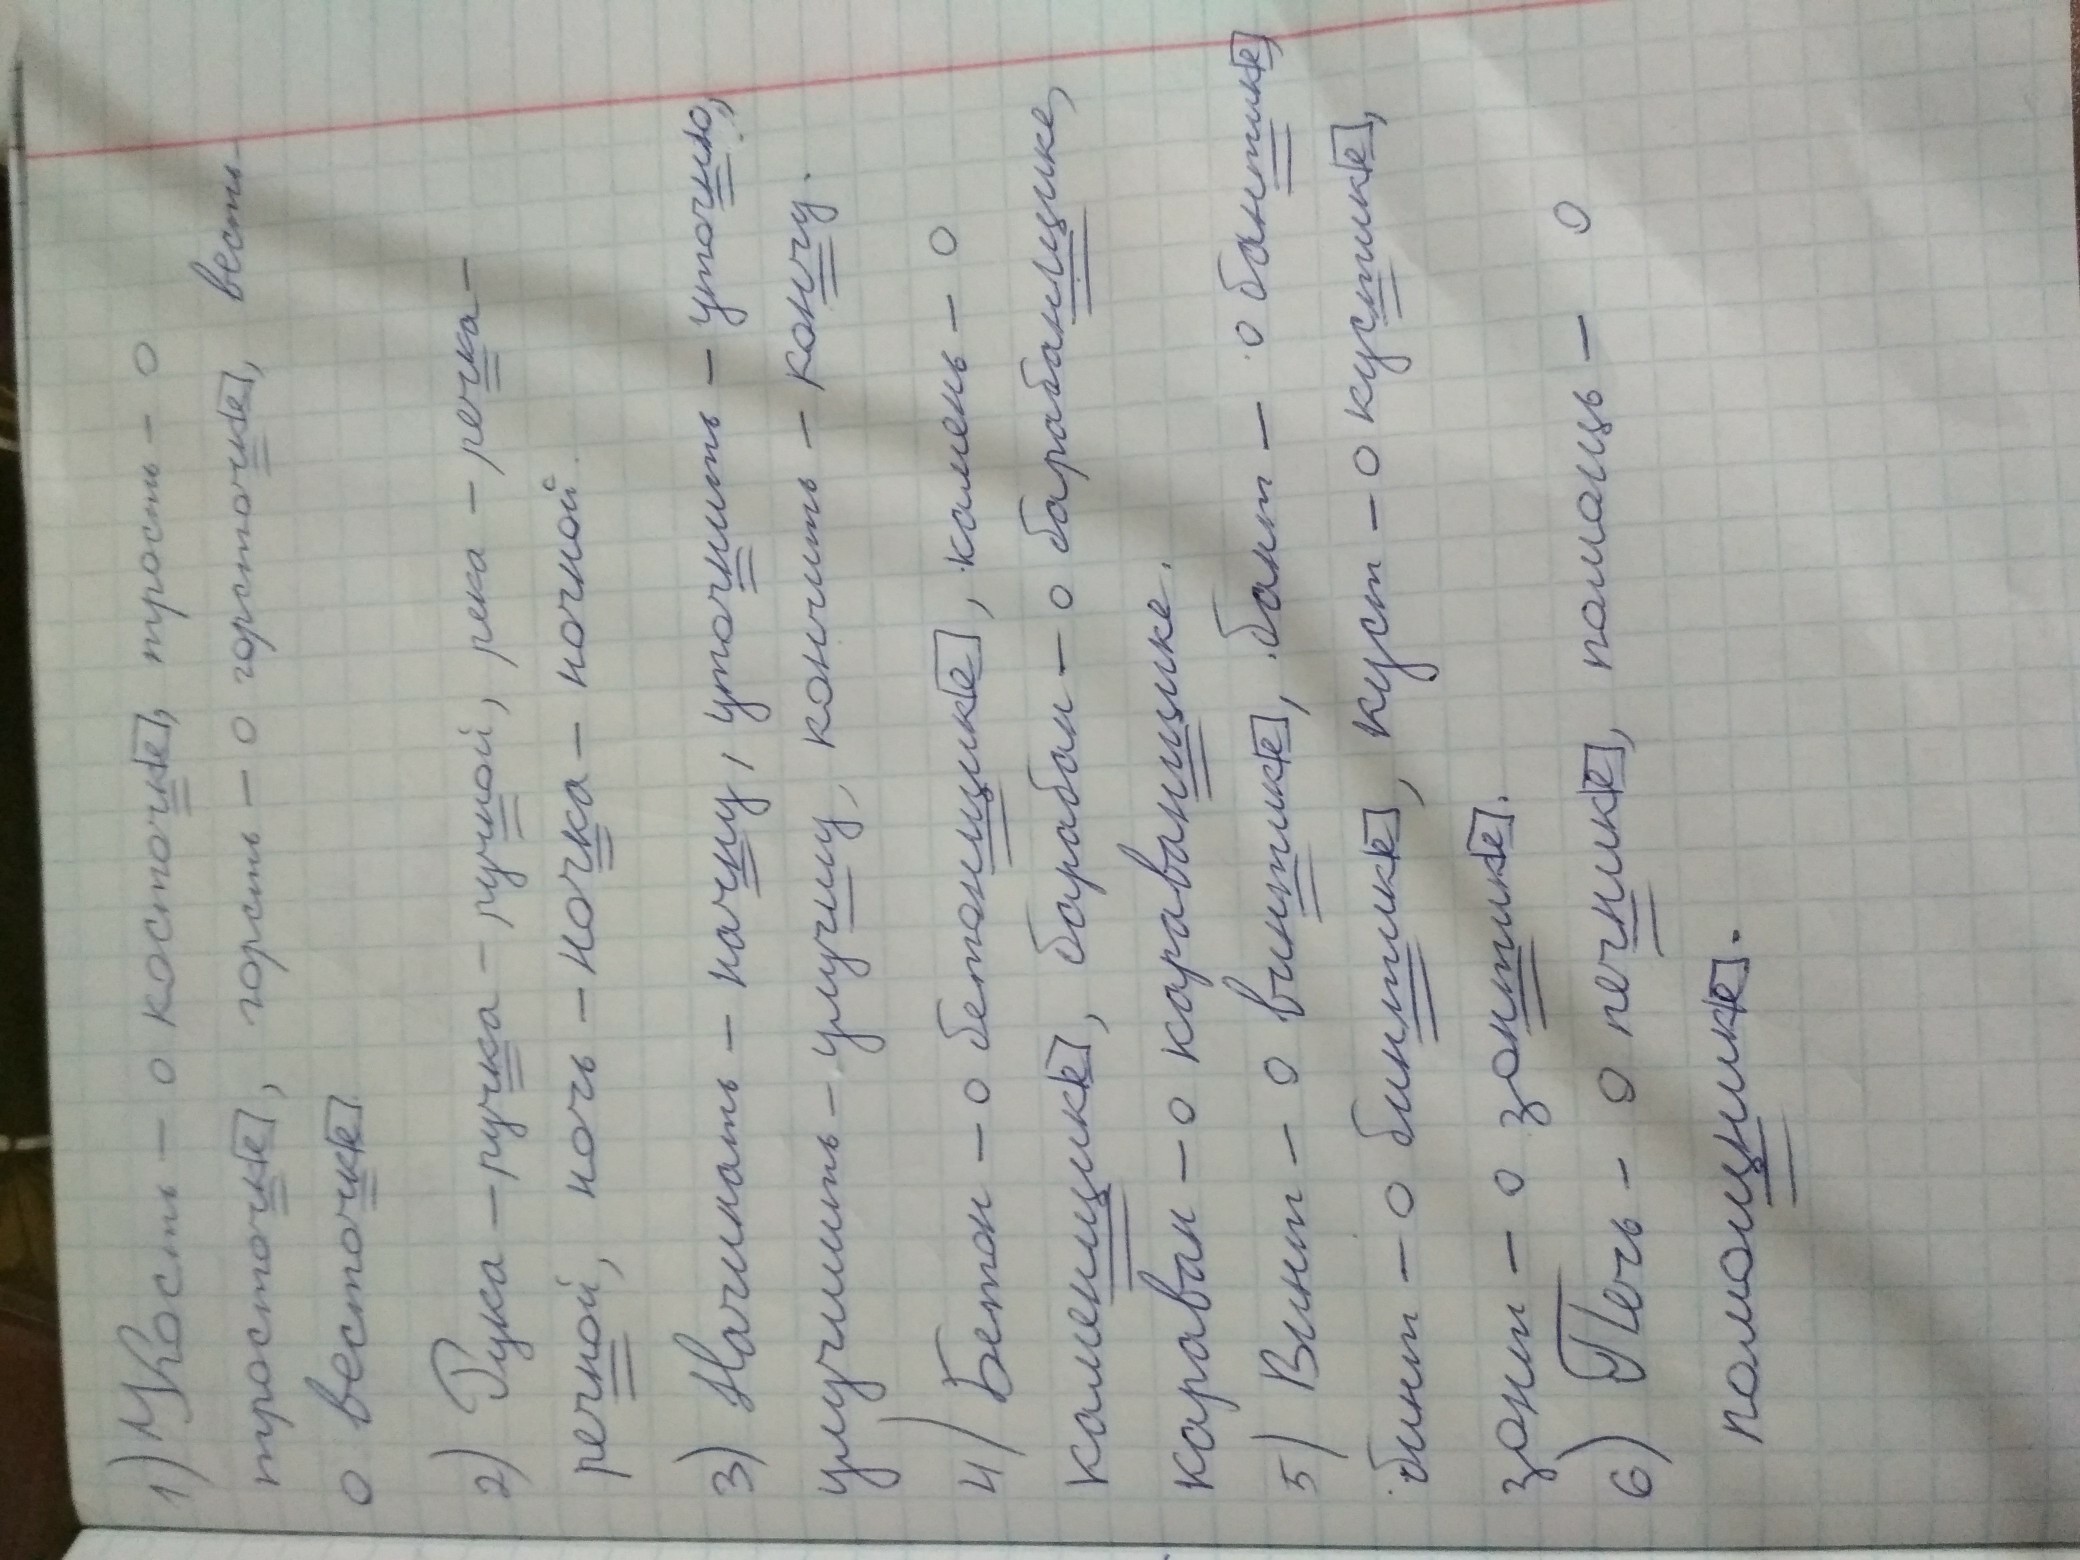 1) Кость – о косточке, трость – о
тросточке, горсть – о горсточке, весть –
о весточке
2) Рука – ручка – ручной, река – речка –
речной, ночь – ночка – ночной.
3) Начинать – начну, уточнить – уточню,
улучшить – улучшу, кончить – кончу.
4) Бетон – о бетонщике, камень – о
каменщике, барабан – о барабанщике,
караван – о караванщике.
5) Винт – о винтике, бант – о бантике,
бинт – о бинтике, куст – о кустике,
зонт – о зонтике.
6) Печь – о печнике, помощь – о
помощнике.